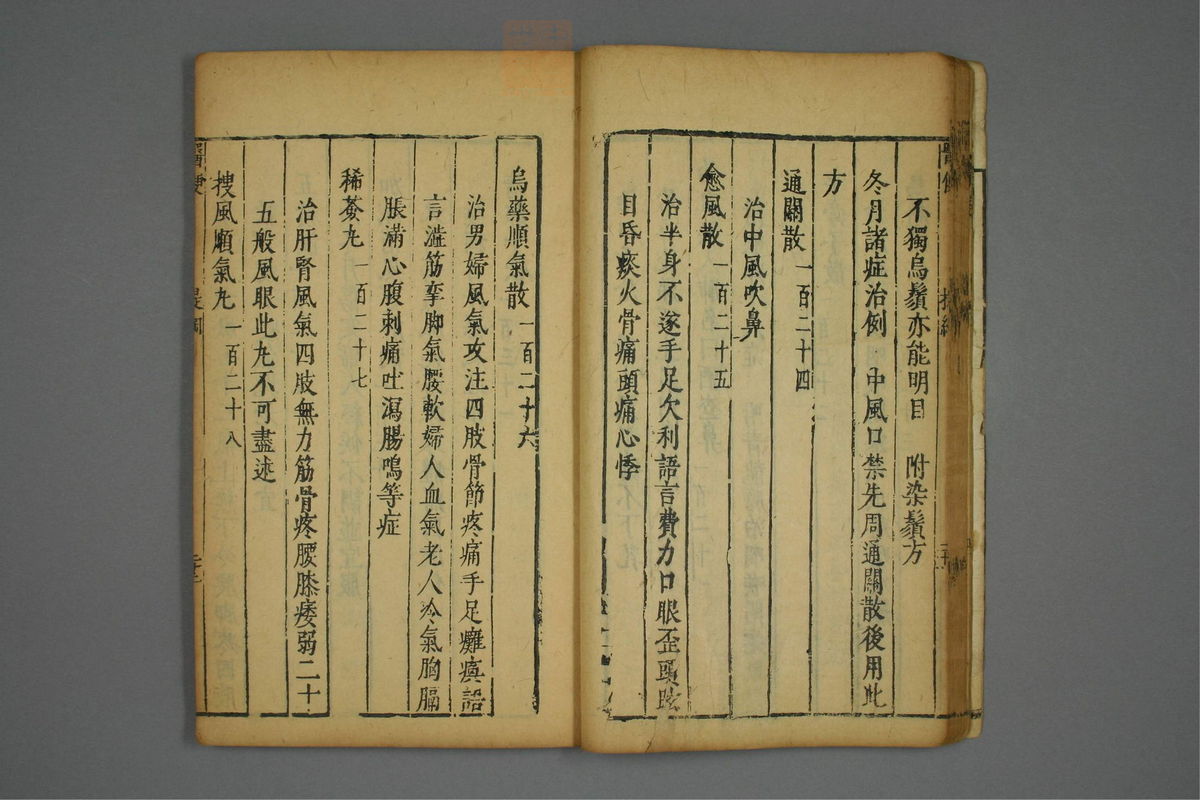 不獨烏鬚亦能明目　附染鬚方
冬月諸症治例　中風口禁先周通關散後用此
方
通關散　一百二十四
治中風吹鼻
愈風散　一百二十五
治半身不遂手足欠利語言費力口眼歪頭眩
目昏痰火骨痛頭痛心悸
烏藥順氣散　一百二十六
治男婦風氣攻注四肢骨節疼痛手足癱瘓語
言澁筋攣脚氣腰軟婦人血氣老人冷氣胸膈
脹滿心腹刺痛吐瀉腸鳴等症
稀薟丸　一百二十七
治肝腎風氣四肢無力筋骨疼腰膝痿弱二十
五般風眼此丸不可盡述
搜風順氣丸　一百二十八